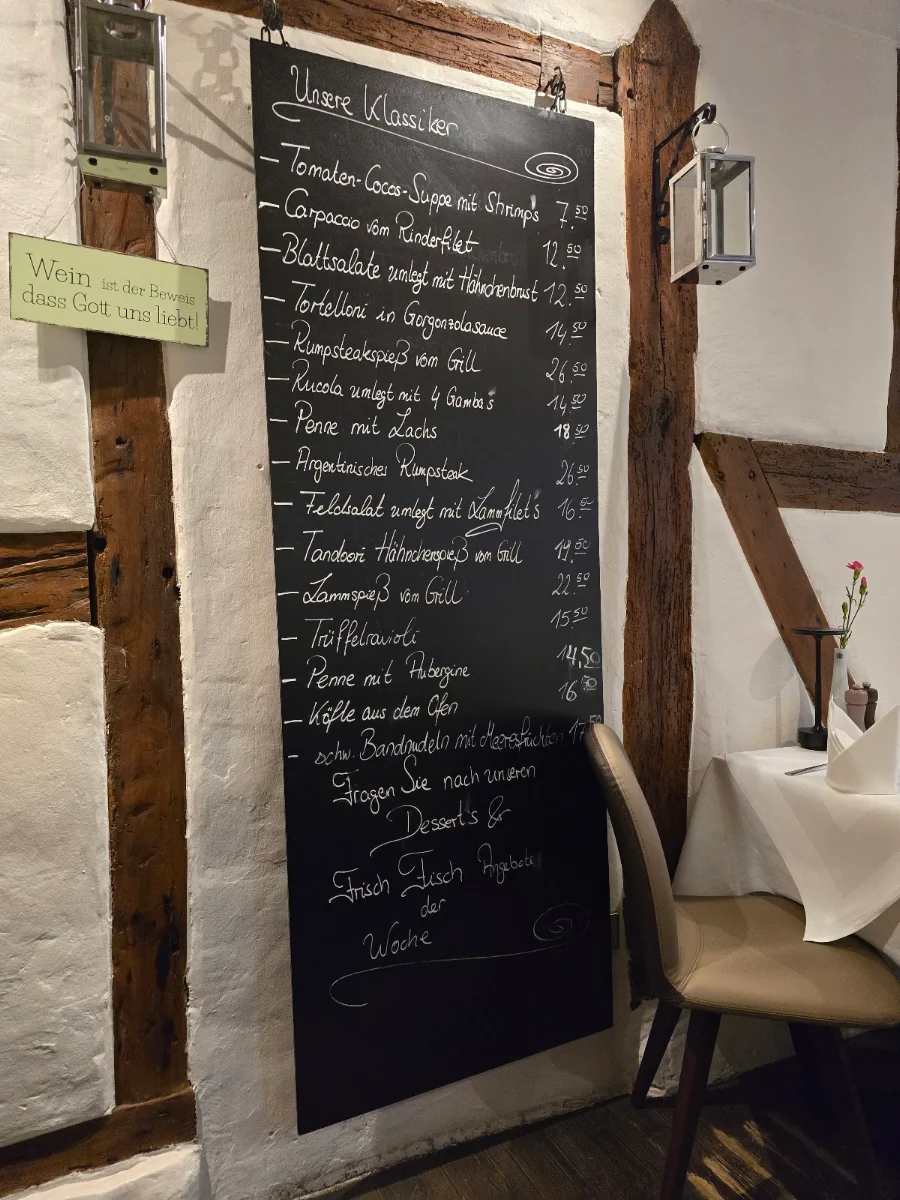 Unsere Klassiker
- Tomaten-Cocos-Suppe mit Shrimp's 7.50
- Carpaccio vom Rinderfilet 12.50
- Blattsalate umlegt mit Hähnchenbrust 12.50
- Tortelloni in Gorgonzolasauce 14.50
- Rumpsteakspieß vom Grill 26.50
- Rucola umlegt mit 4 Gamba's 14.50
- Penne mit Lachs 18.50
- Argentinisches Rumpsteak 26.50
- Feldsalat umlegt mit Lammfilet's 16.50
- Tandoori Hähnchenspieß vom Grill 19.50
- Lammspieß vom Grill 22.50
- Trüffelravioli 15.50
- Penne mit Aubergine 14,50
- Köfte aus dem Ofen 16.50
- schw. Bandnudeln mit Meeresfrüchten 17.50
Fragen Sie nach unseren
Dessert's &
Frisch Fisch Angebote
der
Woche
Wein ist der Beweis
dass Gott uns liebt!